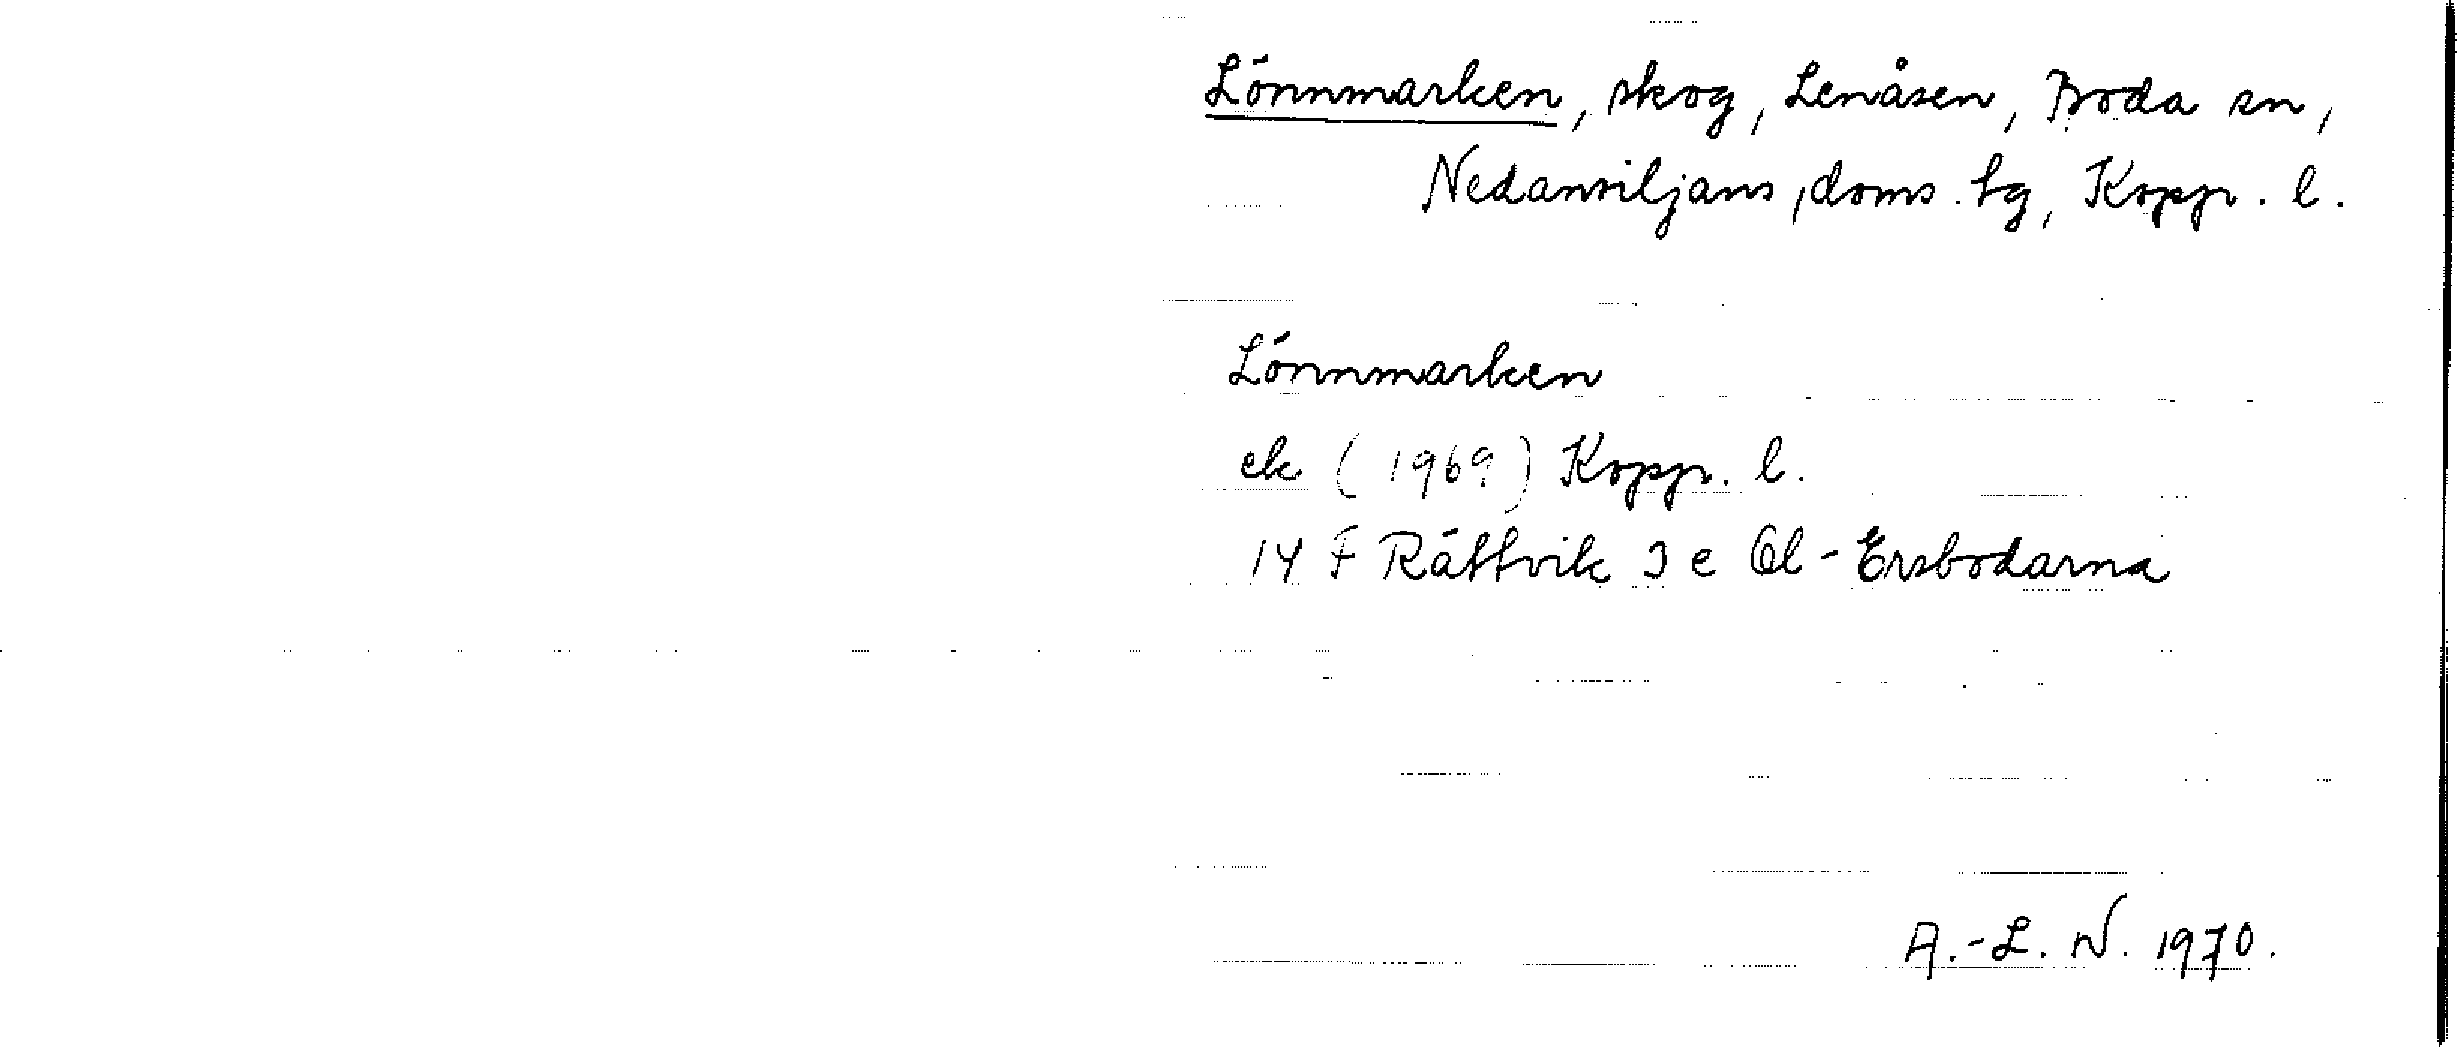 Lönnmarken, skog, Lenåsen, Boda sn,
Nedansiljans, doms. tg, Kopp. l.
Lönnmarken
ek (1969) Kopp. l.
14 F Rättvik 3 e Ol-Ersbodarna
A.-L. N. 1970.